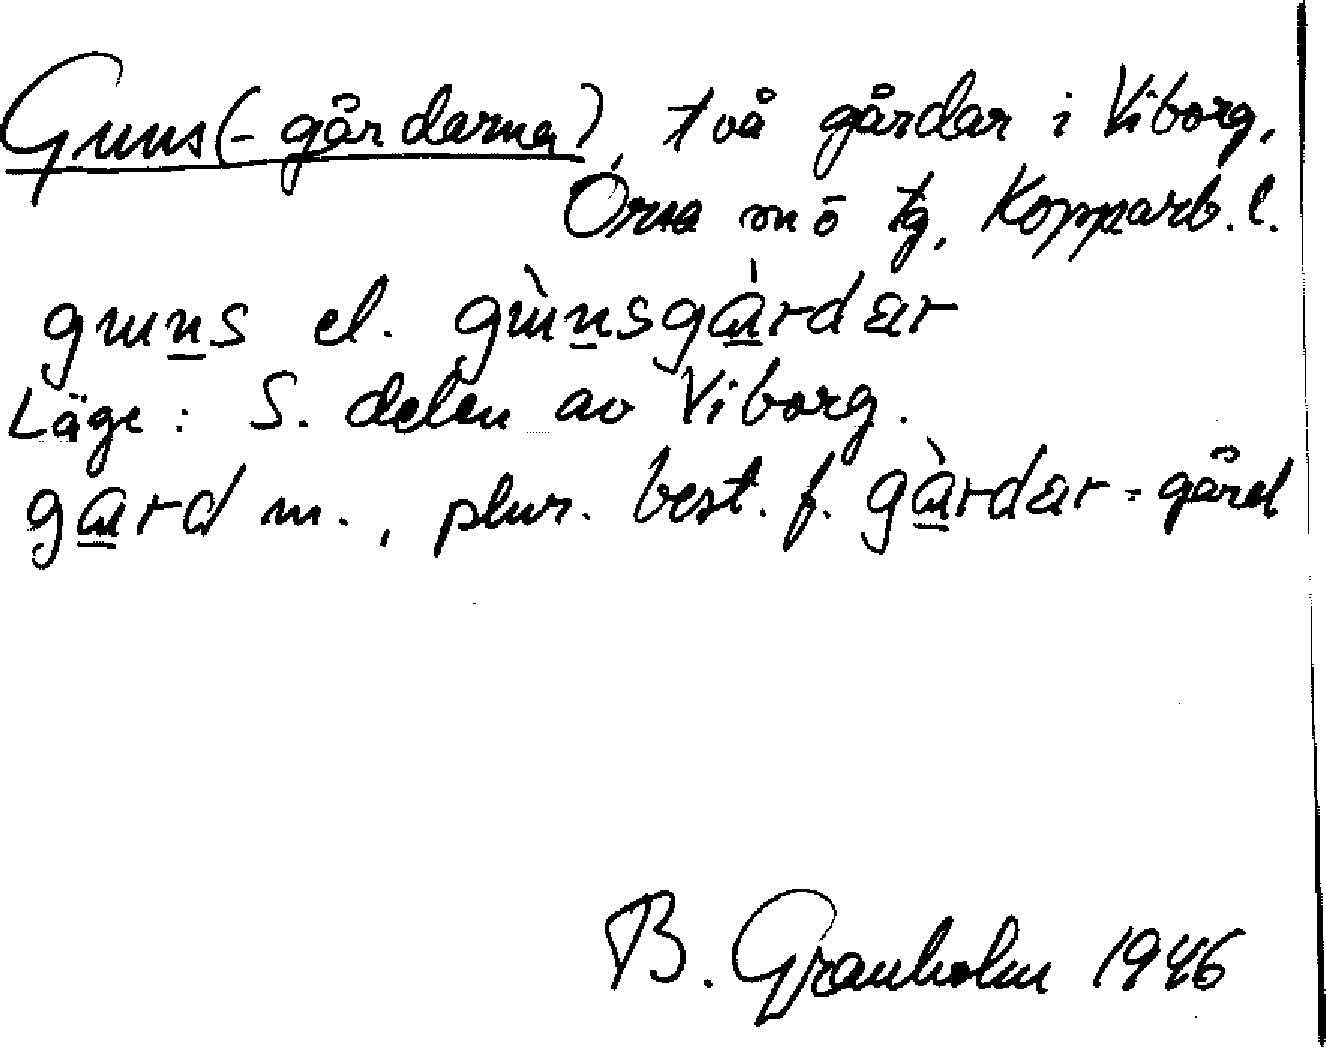 Guns(-gårdarna), två gårdar i Viborg,
Orsa sn o tg, Kopparb. l.
guns el. gùnsgàrdar
Läge: S. delen av Viborg.
gard m., plur. best. f. gàrdar - gård
B. Granholm 1946